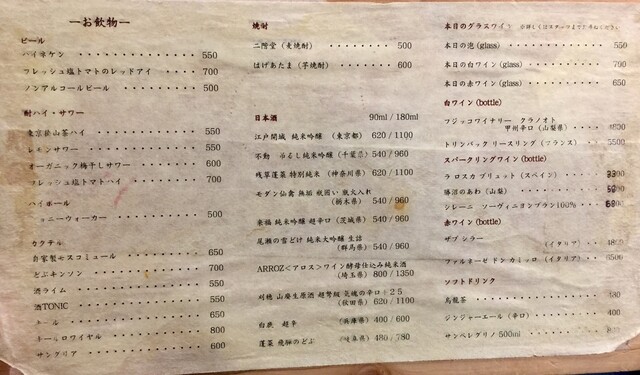 ーお飲物ー
ビール
ハイネケン ・・・・・・・・・・・ 550
フレッシュ塩トマトのレッドアイ ・・・・ 700
ノンアルコールビール ・・・・・・ 500
酎ハイ・サワー
東京檜山茶ハイ ・・・・・・・・・ 550
レモンサワー ・・・・・・・・・・ 550
オーガニック梅干しサワー ・・・・・ 600
フレッシュ塩トマトハイ ・・・・・・ 700
ハイボール
ジョニーウォーカー ・・・・・・・・ 500
カクテル
自家製モスコミュール ・・・・・・ 650
どぶキンソン ・・・・・・・・・・ 700
酒ライム ・・・・・・・・・・・・ 550
酒TONIC ・・・・・・・・・・・・ 550
キール ・・・・・・・・・・・・・ 650
キールロワイヤル ・・・・・・・・ 800
サングリア ・・・・・・・・・・・ 600
焼酎
二階堂 (麦焼酎) ・・・・・・・・ 500
はげあたま (芋焼酎) ・・・・・・ 600
日本酒 90ml / 180ml
江戸開城 純米吟醸 (東京都) 620 / 1100
不動 吊るし純米吟醸 (千葉県) 540 / 960
残草蓬莱 特別純米 (神奈川県) 620 / 1100
モダン仙禽 無垢 瓶囲い 瓶火入れ
(栃木県) 540 / 960
来福 純米吟醸 超辛口 (茨城県) 540 / 960
尾瀬の雪どけ 純米大吟醸 生詰
(群馬県) 540 / 960
ARROZ<アロス>ワイン酵母仕込み純米酒
(埼玉県) 800 / 1350
刈穂 山廃生原酒 超弩級 気魄の辛口+25
(秋田県) 620 / 1100
白鹿 超辛 (兵庫県) 400 / 600
蓬莱 飛騨のどぶ (岐阜県) 480 / 780
本日のグラスワイン
本日の泡 (glass) ・・・・・・・・ 550
本日の白ワイン (glass) ・・・・・ 790
本日の赤ワイン (glass) ・・・・・ 650
白ワイン (bottle)
フジッコワイナリー クラノオト
甲州辛口 (山梨県) ・・・ 4600
トリンバック リースリング (フランス) ・・ 5500
スパークリングワイン (bottle)
ラ ロスカ ブリュット (スペイン) ・・
勝沼のあわ (山梨) ・・・・・・・
シレーニ ソーヴィニヨンブラン100% ・・・
赤ワイン (bottle)
ザブ シラー
(イタリア) ・・
ファルネーゼ ドン カミッロ (イタリア) ・・ 3500
ソフトドリンク
烏龍茶 ・・・・・・・・・・・・
ジンジャーエール (辛口) ・・・・ 400
サンペレグリノ 500ml ・・・・・・